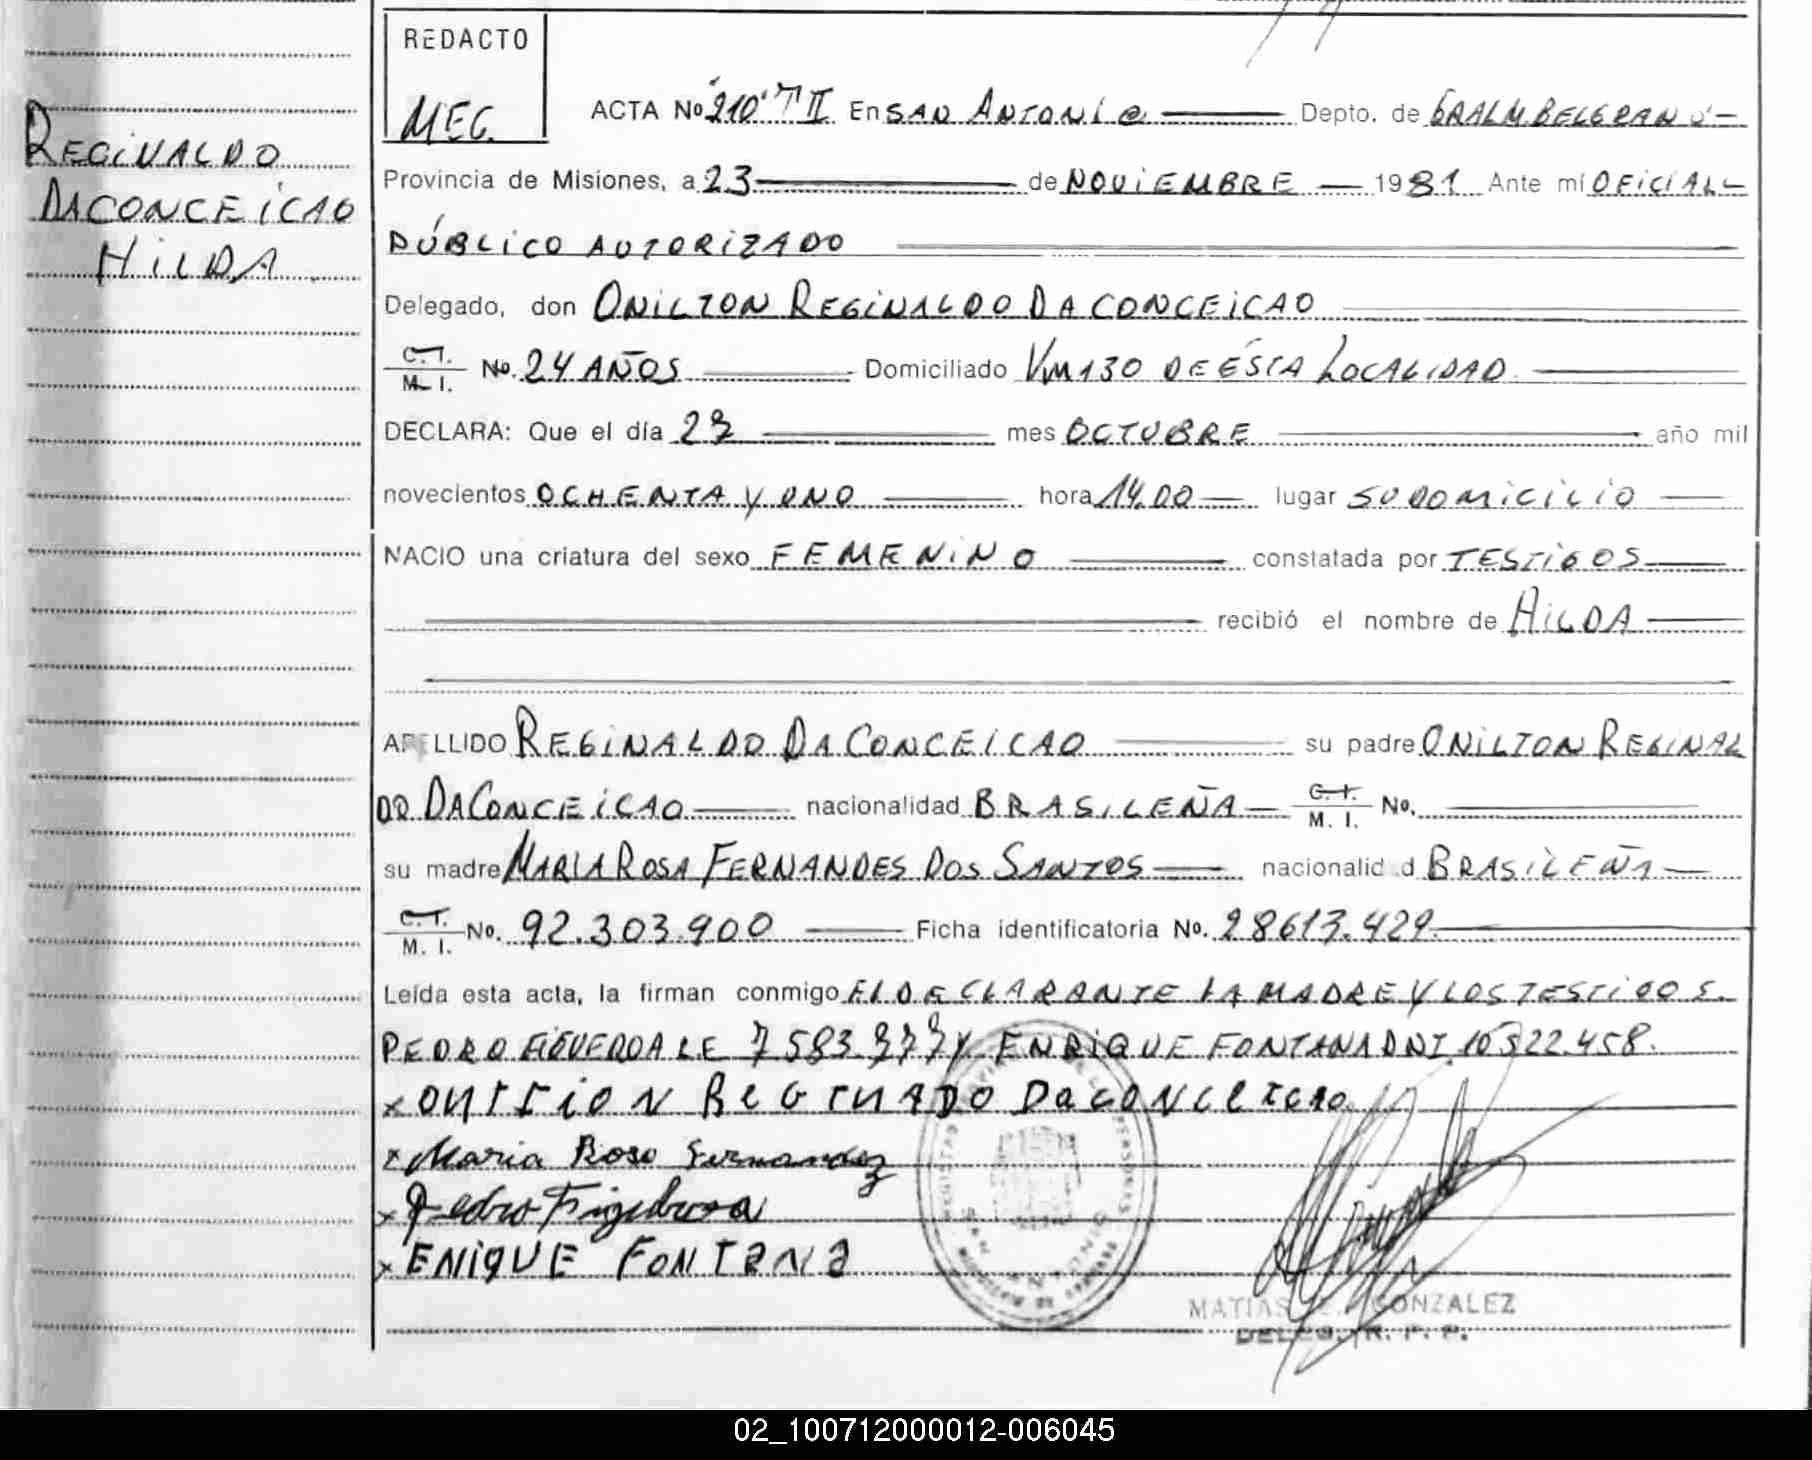 REDACTO
MEG.
ACTA No 210 T II En SAN ANTONIO Depto. de GRAL M. BELGRANO
REGINALDO
DACONCEICAO
HILDA
Provincia de Misiones, a 23 de NOVIEMBRE 1981 Ante mí OFICIAL
PÚBLICO AUTORIZADO
Delegado, don ONILTON REGINALDO DA CONCEICAO
C. I. M. I. No. 24 AÑOS Domiciliado KM 130 DE ÉSTA LOCALIDAD
DECLARA: Que el día 23 mes OCTUBRE año mil
novecientos OCHENTA Y UNO hora 14,00 lugar SU DOMICILIO
NACIO una criatura del sexo FEMENINO constatada por TESTIGOS
recibió el nombre de HILDA
APELLIDO REGINALDO DA CONCEICAO su padre ONILTON REGINAL
DO DA CONCEICAO nacionalidad BRASILEÑA C. I. M. I. No.
su madre MARIA ROSA FERNANDES DOS SANTOS nacionalid d BRASILEÑA
C. I. M. I. No. 92.303.900 Ficha identificatoria No. 28613.429
Leída esta acta, la firman conmigo El DECLARANTE LA MADRE Y LOS TESTIGOS.
PEDRO FIGUEROA LE 7583.977 Y ENRIQUE FONTANA DNI 10322.458.
x REGINADO DACONCEICAO
x Maria Rosa Fernandez
x Pedro Figueroa
x ENIQUE FONTANA
MATIAS GONZALEZ
DELEG. R. P. P.
02_100712000012-006045